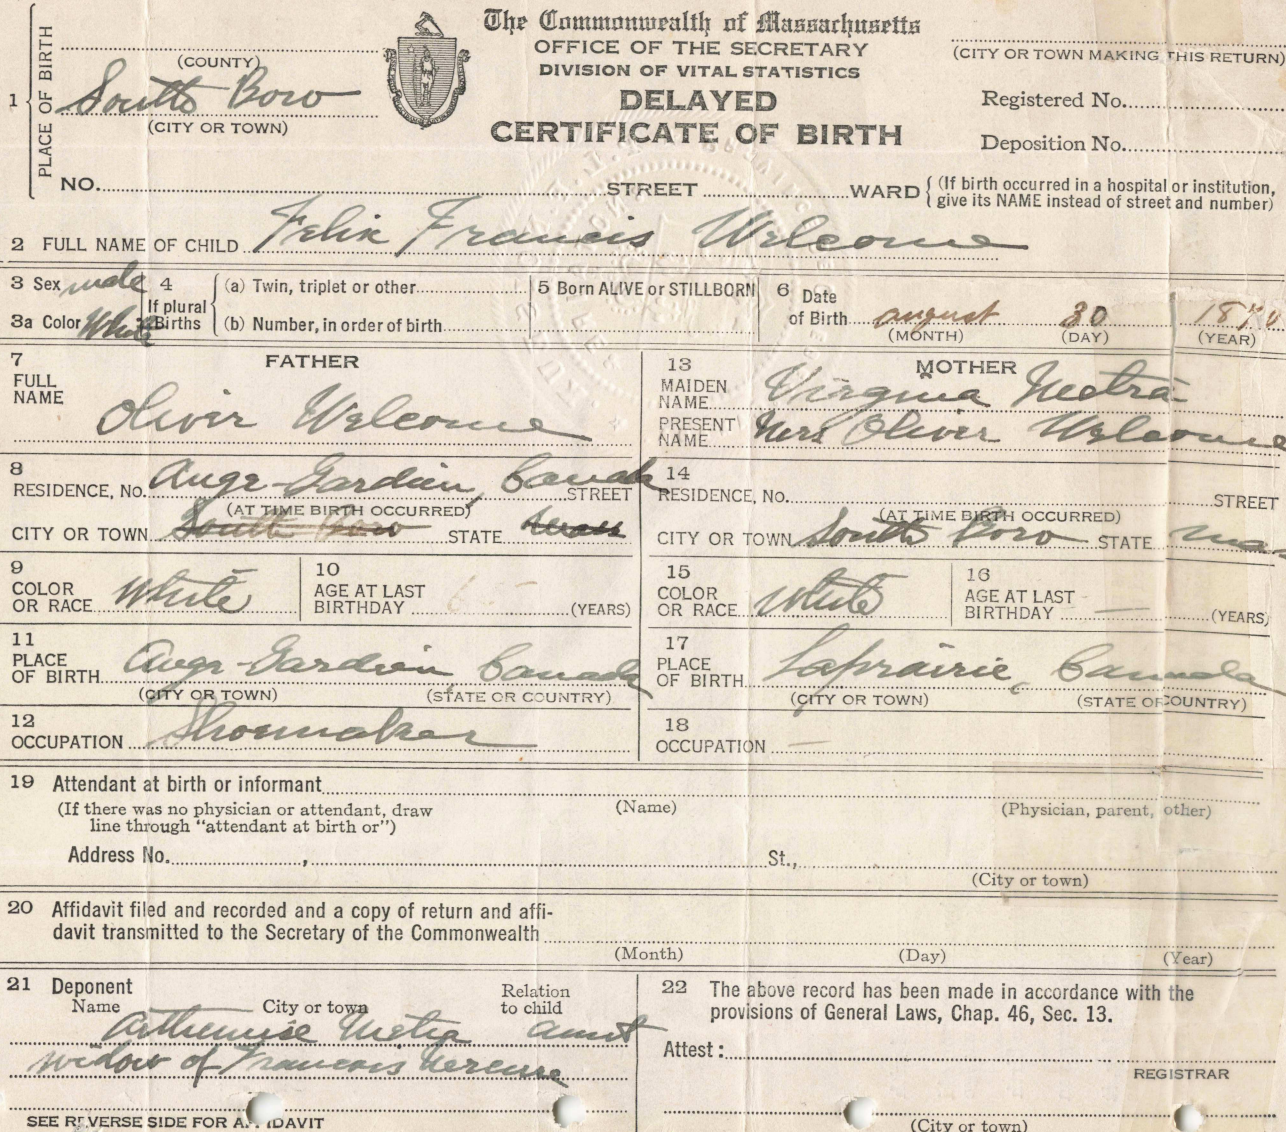 The Commonwealth of Massachusetts
OFFICE OF THE SECRETARY
DIVISION OF VITAL STATISTICS
DELAYED
CERTIFICATE OF BIRTH
(CITY OR TOWN MAKING THIS RETURN)
Registered No.
Deposition No.
1 PLACE OF BIRTH
(COUNTY)
South Boro
(CITY OR TOWN)
NO. STREET WARD (If birth occurred in a hospital or institution, give its NAME instead of street and number)
2 FULL NAME OF CHILD Felix Francis Welcome
3 Sex male
3a Color White
4 If plural Births
(a) Twin, triplet or other
(b) Number, in order of birth
5 Born ALIVE or STILLBORN
6 Date of Birth august 30
(MONTH) (DAY) (YEAR)
FATHER
7 FULL NAME
Oliver Welcome
8 RESIDENCE, No. Ange-Gardien, Canada STREET
(AT TIME BIRTH OCCURRED)
CITY OR TOWN South Boro STATE Mass
9 COLOR OR RACE White
10 AGE AT LAST BIRTHDAY (YEARS)
11 PLACE OF BIRTH Ange-Gardien Canada
(CITY OR TOWN) (STATE OR COUNTRY)
12 OCCUPATION Shoemaker
MOTHER
13 MAIDEN NAME Virginia
PRESENT NAME Mrs Oliver Welcome
14 RESIDENCE, No. STREET
(AT TIME BIRTH OCCURRED)
CITY OR TOWN South Boro STATE Mas
15 COLOR OR RACE White
16 AGE AT LAST BIRTHDAY — (YEARS)
17 PLACE OF BIRTH Laprairie, Canada
(CITY OR TOWN) (STATE OF COUNTRY)
18 OCCUPATION —
19 Attendant at birth or informant
(If there was no physician or attendant, draw (Name) (Physician, parent, other)
line through "attendant at birth or")
Address No. , St.,
(City or town)
20 Affidavit filed and recorded and a copy of return and affi-
davit transmitted to the Secretary of the Commonwealth
(Month) (Day) (Year)
21 Deponent
Name City or town Relation to child
aunt
widow of Francois
SEE REVERSE SIDE FOR AFFIDAVIT
22 The above record has been made in accordance with the
provisions of General Laws, Chap. 46, Sec. 13.
Attest:
REGISTRAR
(City or town)